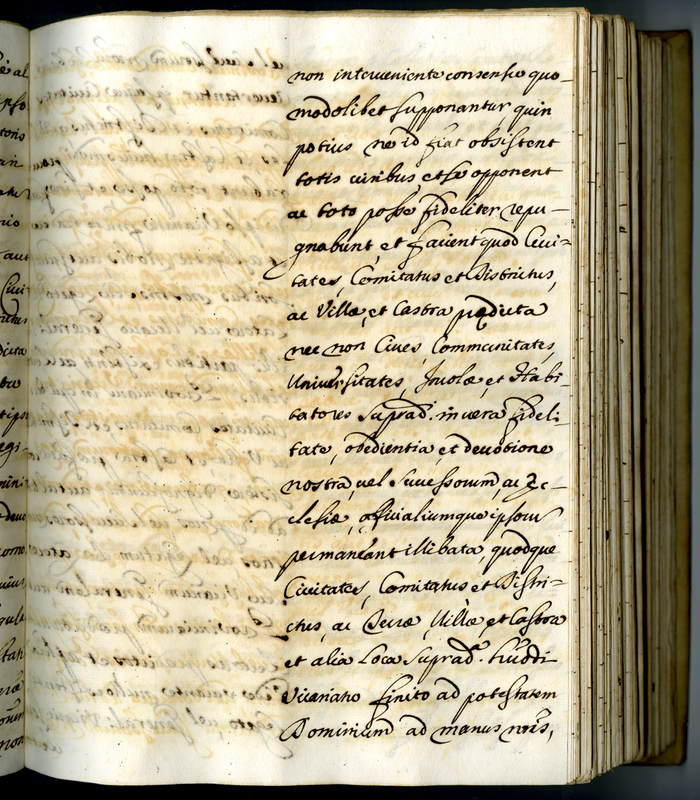 non interveniente consensu quo-
modolibet supponantur, quin
potius ne id fiat obsistent
totis viribus et se opponent
ac toto posse fideliter repu-
gnabunt, et facient quod Civi-
tates, Comitatus et Districtus,
ac Villæ, et Castra pdicta
nec non Cives, Communitates,
Universitates, Incolæ, et Habi-
tatores suprad. in vera fideli-
tate, obedientia, et devotione
nostra, vel successorum, ac Ec-
clesiæ, officialiumque ipsorū
permaneant illibata, quodque
Civitates, Comitatus et Distri-
ctus, ac Terræ, Villæ, et Castra
et alia Loca suprad.
Vicariatu finito ad potestatem
Dominium ad manus nrās,